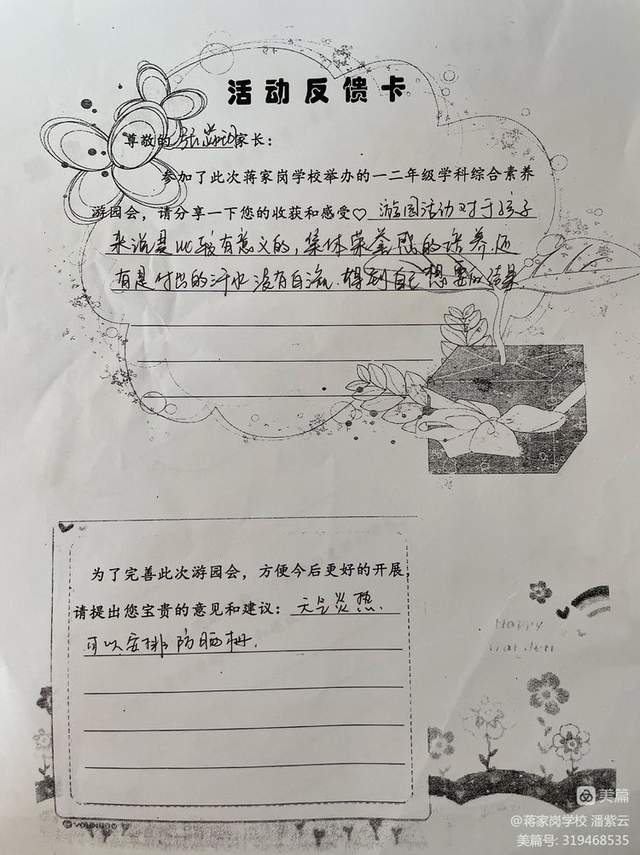 活动反馈卡
尊敬的 家长：
参加了此次蒋家岗学校举办的一二年级学科综合素养
游园会，请分享一下您的收获和感受♡ 游园活动对于孩子
来说是比较有意义的，集体荣誉感的培养，还
有是付出的汗水没有白流，得到自己想要的结果
为了完善此次游园会，方便今后更好的开展，
请提出您宝贵的意见和建议：天气炎热，
可以安排防晒棚.
Happy
Garden
美篇
@蒋家岗学校 潘紫云
美篇号: 319468535